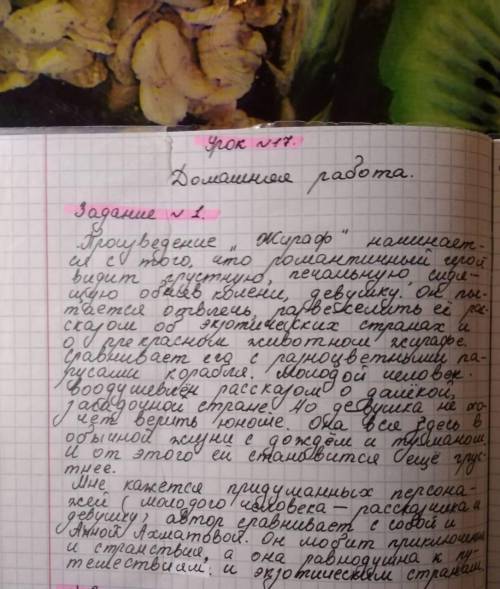 Урок №17.
Домашняя работа.
Задание №1.
Произведение „Жираф" начинает-
ся с того, что романтичный герой
видит грустную, печальную, сидя-
щую обняв колени, девушку. Он пы-
тается отвлечь, развеселить её рас-
сказом об экзотических странах и
о прекрасном животном жирафе.
Сравнивает его с разноцветными па-
русами корабля. Молодой человек
воодушевлён рассказом о далёкой,
загадочной стране. Но девушка не хо-
чет верить юноше. Она вся здесь в
обычной жизни с дождём и туманом
и от этого ей становится ещё груст-
нее.
Мне кажется придуманных персона-
жей (молодого человека - рассказчика и
девушку) автор сравнивает с собой и
Анной Ахматовой. Он любит приключения
и странствия, а она равнодушна к пу-
тешествиям и экзотическим странам.